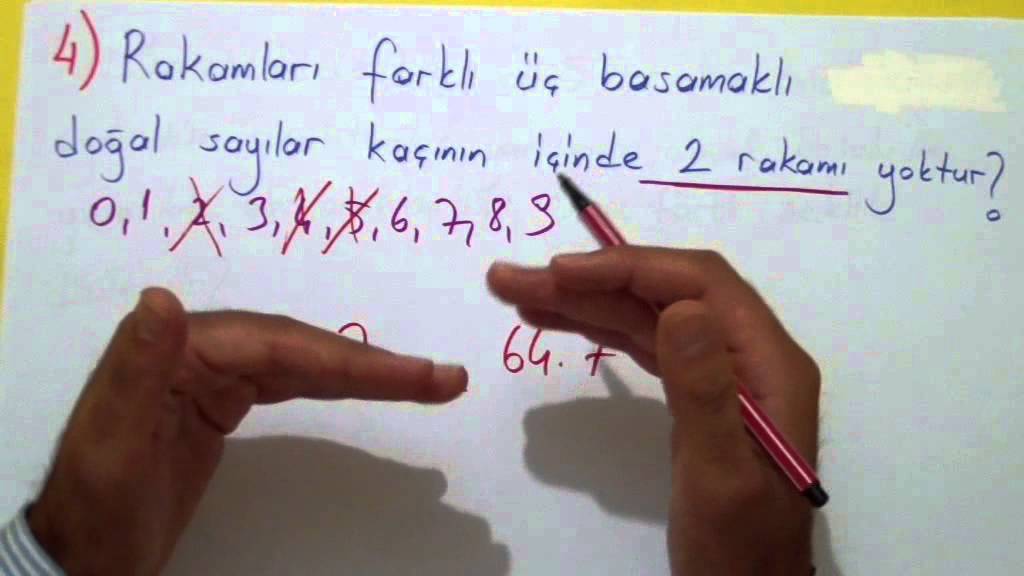 4) Rakamları farklı üç basamaklı
doğal sayılar kaçının içinde 2 rakamı yoktur?
0, 1, 2, 3, 4, 5, 6, 7, 8, 9
64. 7